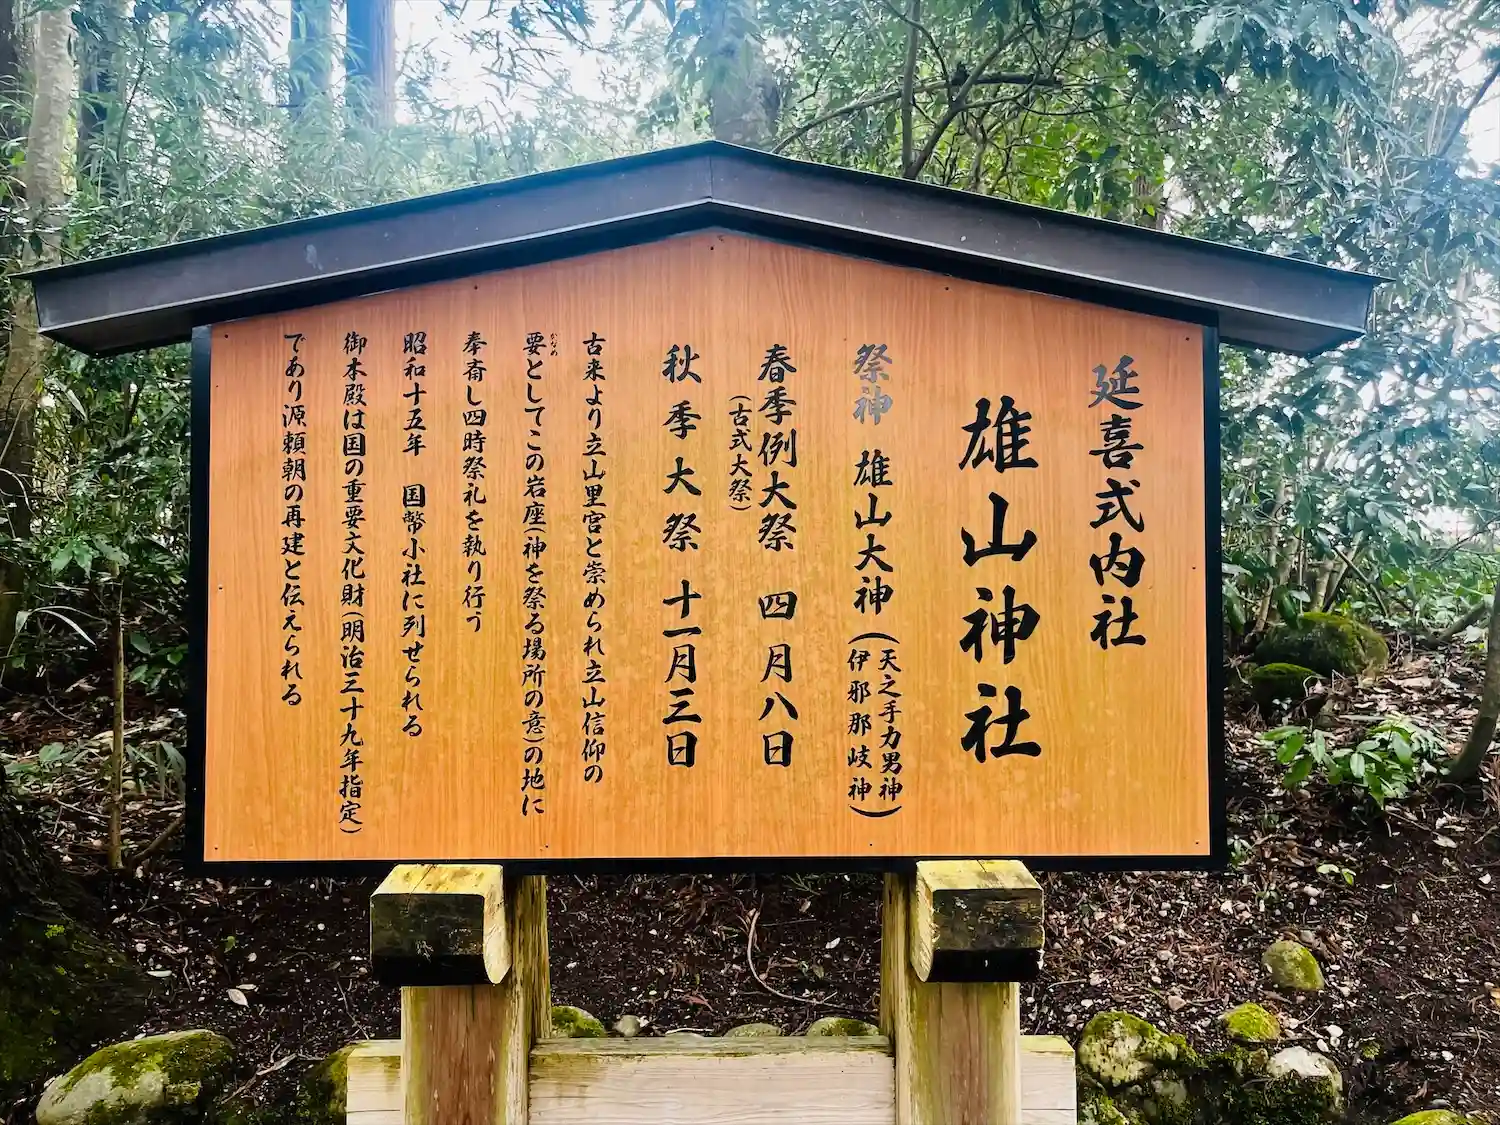 延喜式内社
雄山神社
祭神 雄山大神(天之手力男神)(伊邪那岐神)
春季例大祭 四月八日
(古式大祭)
秋季大祭 十一月三日
古来より立山里宮と崇められ立山信仰の
要かなめとしてこの岩座(神を祭る場所の意)の地に
奉斎し四時祭礼を執り行う
昭和十五年 国幣小社に列せられる
御本殿は国の重要文化財(明治三十九年指定)
であり源頼朝の再建と伝えられる